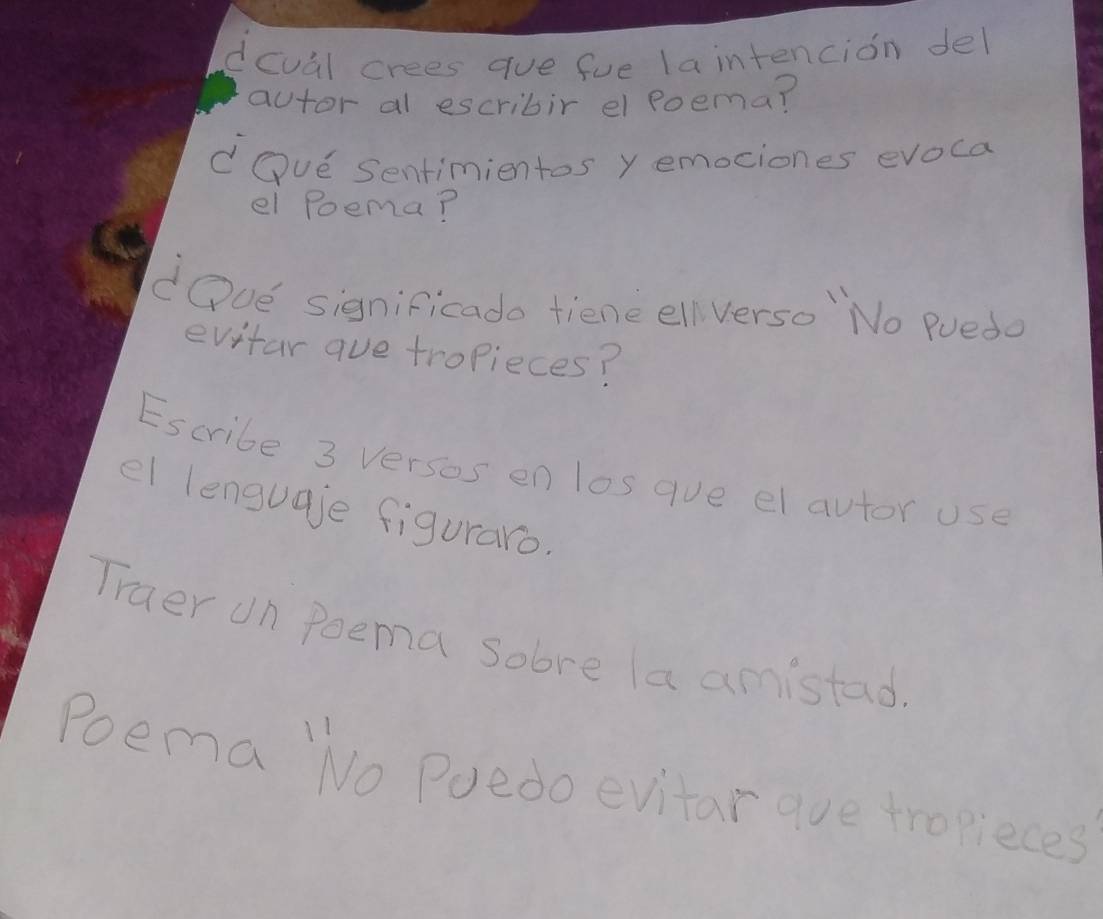 ¿Cuál crees que fue la intención del
autor al escribir el Poema?
¿Qué sentimientos y emociones evoca
el Poema?
¿Qué significado tiene el verso "No Puedo
evitar que tropieces?
Escribe 3 versos en los que el autor use
el lenguaje figuraro.
Traer un Poema sobre la amistad.
Poema "No Puedo evitar que tropieces"